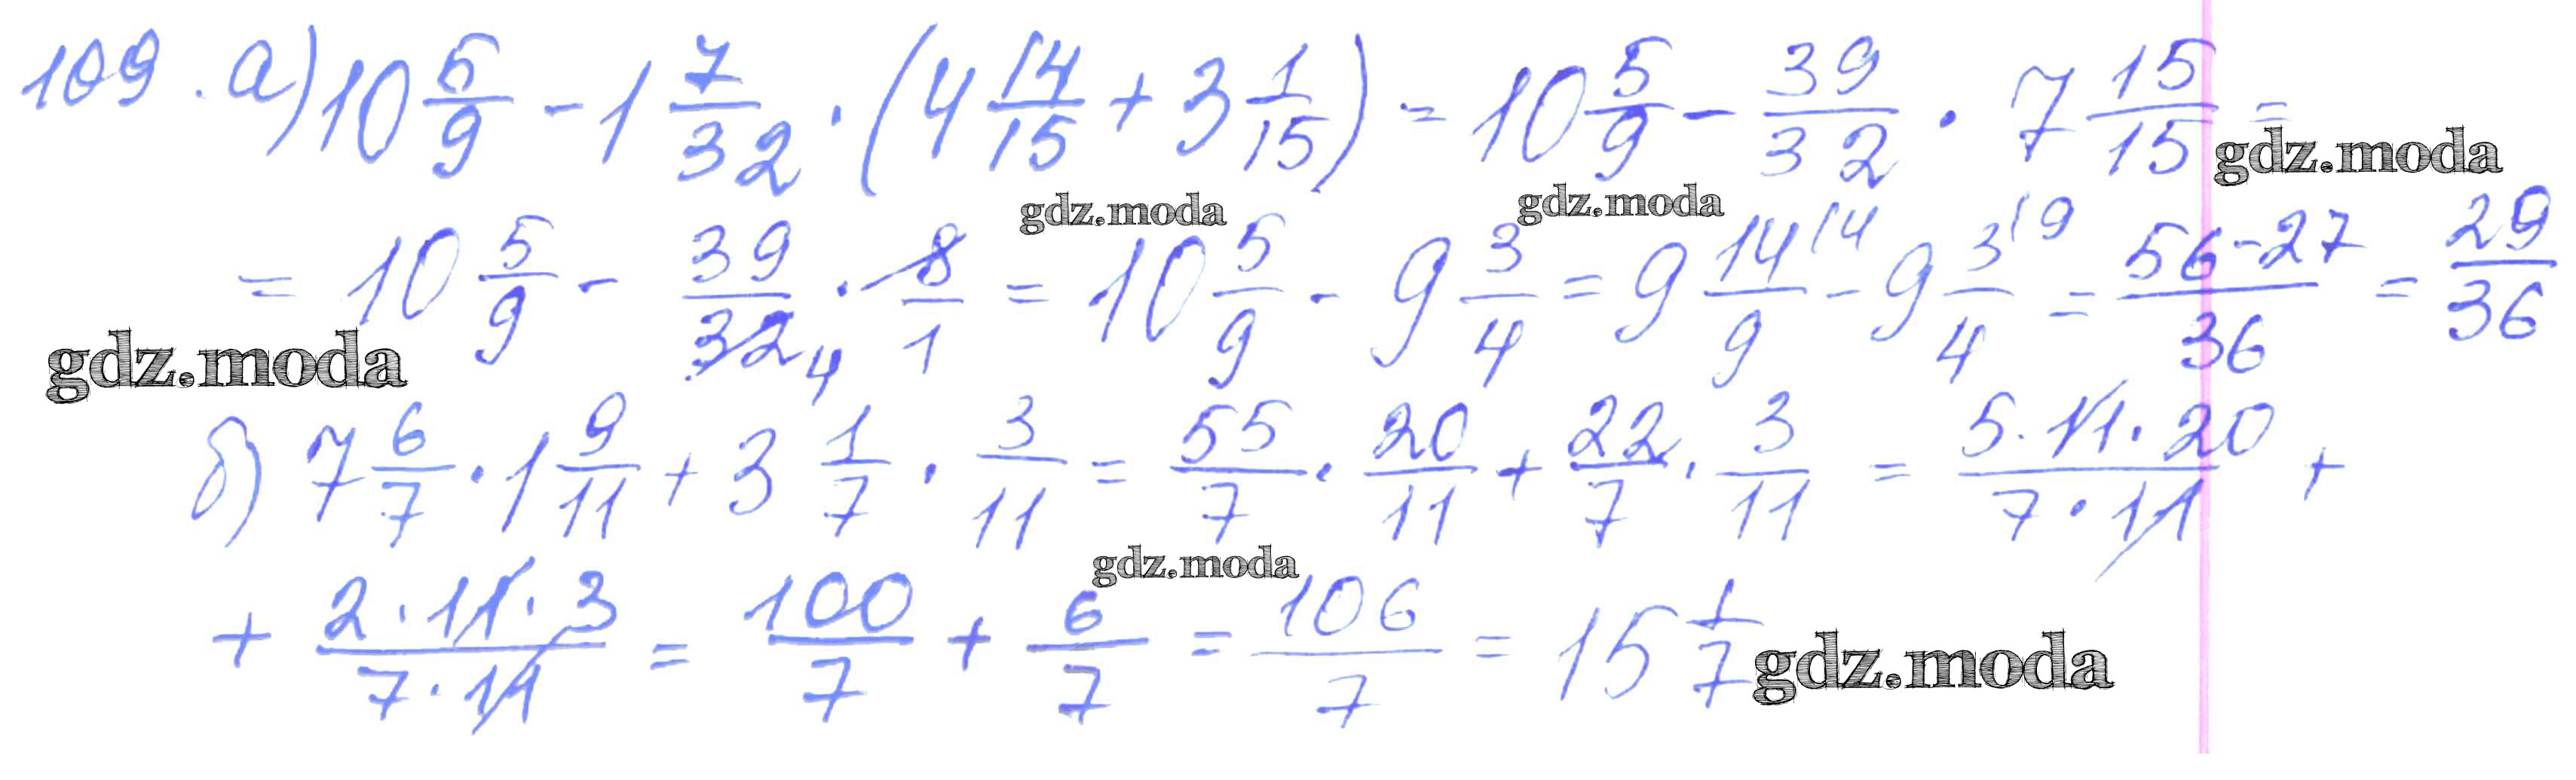 109. а) 10 5/9 - 1 7/32 · (4 14/15 + 3 1/15) = 10 5/9 - 39/32 · 7 15/15 =
gdz.moda
gdz.moda gdz.moda
= 10 5/9 - 39/32 4 · 8/1 = 10 5/9 - 9 3/4 = 9 14/9 \4 - 9 3/4 \9 = 56-27/36 = 29/36
gdz.moda
б) 7 6/7 · 1 9/11 + 3 1/7 · 3/11 = 55/7 · 20/11 + 22/7 · 3/11 = 5·11·20/7·11 +
gdz.moda
+ 2·11·3/7·11 = 100/7 + 6/7 = 106/7 = 15 1/7
gdz.moda